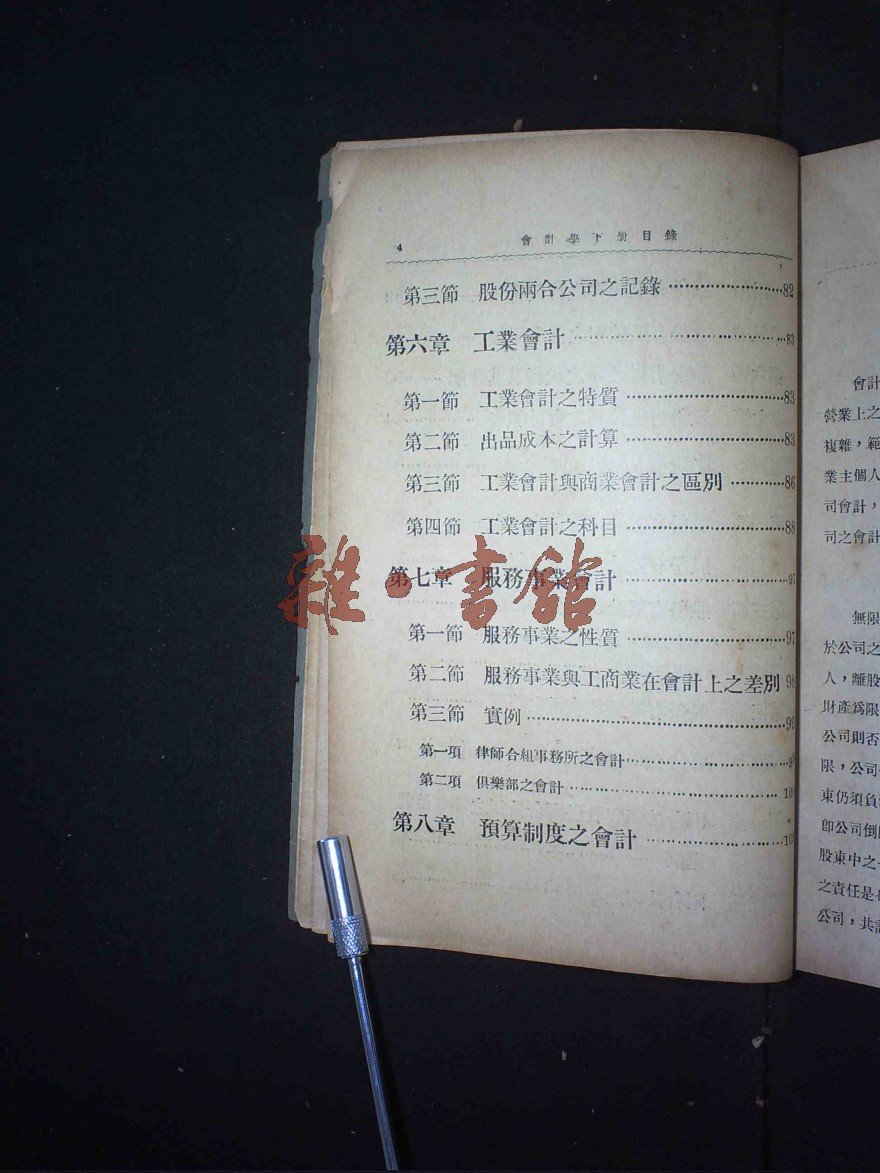 4
會計學下册目錄
第三節 股份兩合公司之記錄 ……………………82
第六章 工業會計 ……………………83
第一節 工業會計之特質 ……………………83
第二節 出品成本之計算 ……………………83
第三節 工業會計與商業會計之區別 …………86
第四節 工業會計之科目 ……………………88
第七章 服務事業會計 ……………………97
第一節 服務事業之性質 ……………………97
第二節 服務事業與工商業在會計上之差別 98
第三節 實例 ……………………99
第一項 律師合組事務所之會計 ……………………
第二項 俱樂部之會計 ……………………
第八章 預算制度之會計 ……………………
雜·書館
會計
營業上之
複雜，範
業主個人
司會計，
司之會計
無限
於公司之
人，離股
財產爲限
公司則否
限，公司
東仍須負
卽公司倒
股東中之
之責任是
公司，共